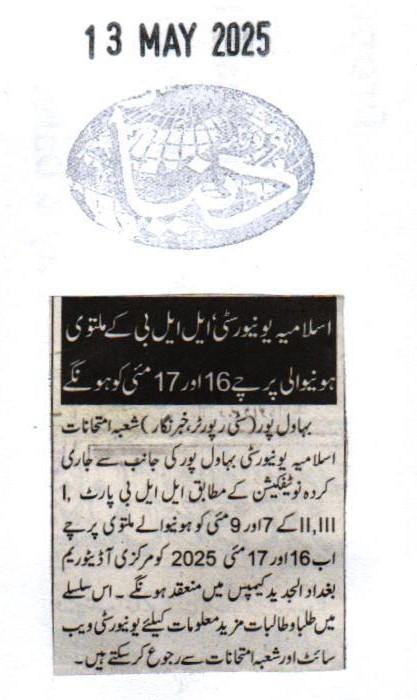 13 MAY 2025
دنیا
اسلامیہ یونیورسٹی‘ ایل ایل بی کے ملتوی
ہونیوالی پرچے 16 اور 17 مئی کو ہونگے
بہاول پور (سٹی رپورٹر، خبر نگار) شعبہ امتحانات
اسلامیہ یونیورسٹی بہاول پور کی جانب سے جاری
کردہ نوٹیفکیشن کے مطابق ایل ایل بی پارٹ I,
II,III کے 7 اور 9 مئی کو ہونیوالے ملتوی پرچے
اب 16 اور 17 مئی 2025 کو مرکزی آڈیٹوریم
بغداد الجدید کیمپس میں منعقد ہونگے ۔ اس سلسلے
میں طلبا و طالبات مزید معلومات کیلئے یونیورسٹی ویب
سائٹ اور شعبہ امتحانات سے رجوع کر سکتے ہیں۔